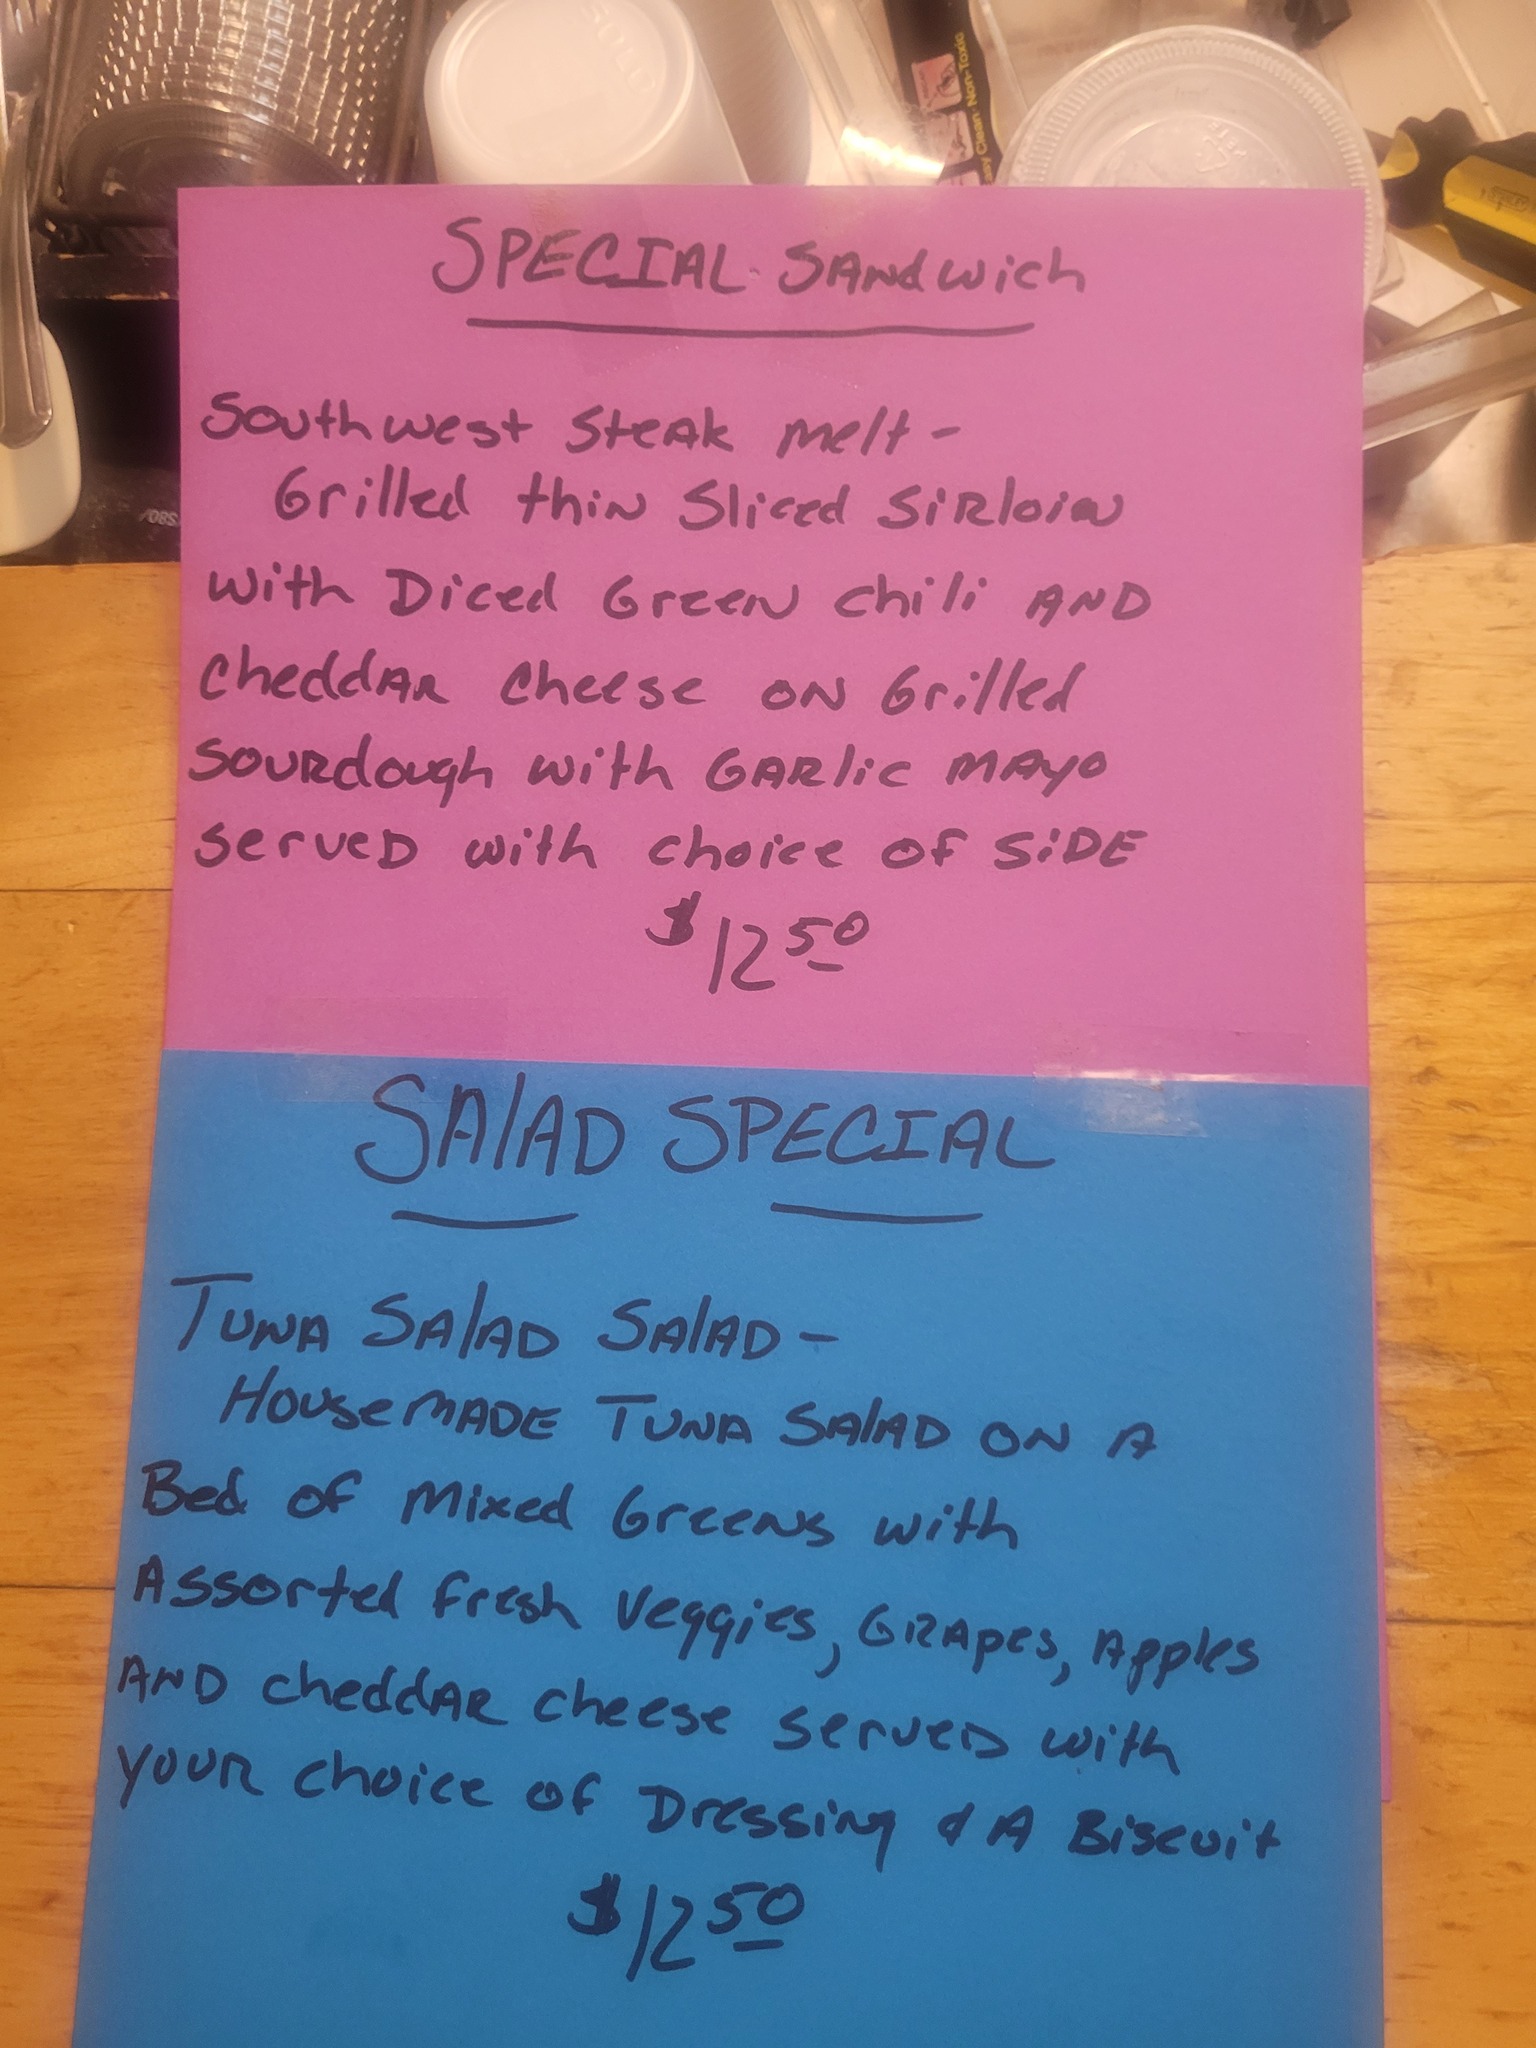 SOLO
Easy Clean · Non-Toxic
SPECIAL SANDwich
Southwest Steak melt -
Grilled thin Sliced SiRloin
with Diced Green chili AND
cheddAR cheese on Grilled
SOURdough with GARlic MAYO
served with choice of SiDE
$12 50
SAlAD SPECIAL
TUNA SAlAD SAlAD -
HousemADE TUNA SAlAD ON A
Bed of Mixed Greens with
Assorted fresh Veggies, GRApes, Apples
AND cheddAR cheese served with
YOUR choice of Dressing & A Biscuit
$12 50